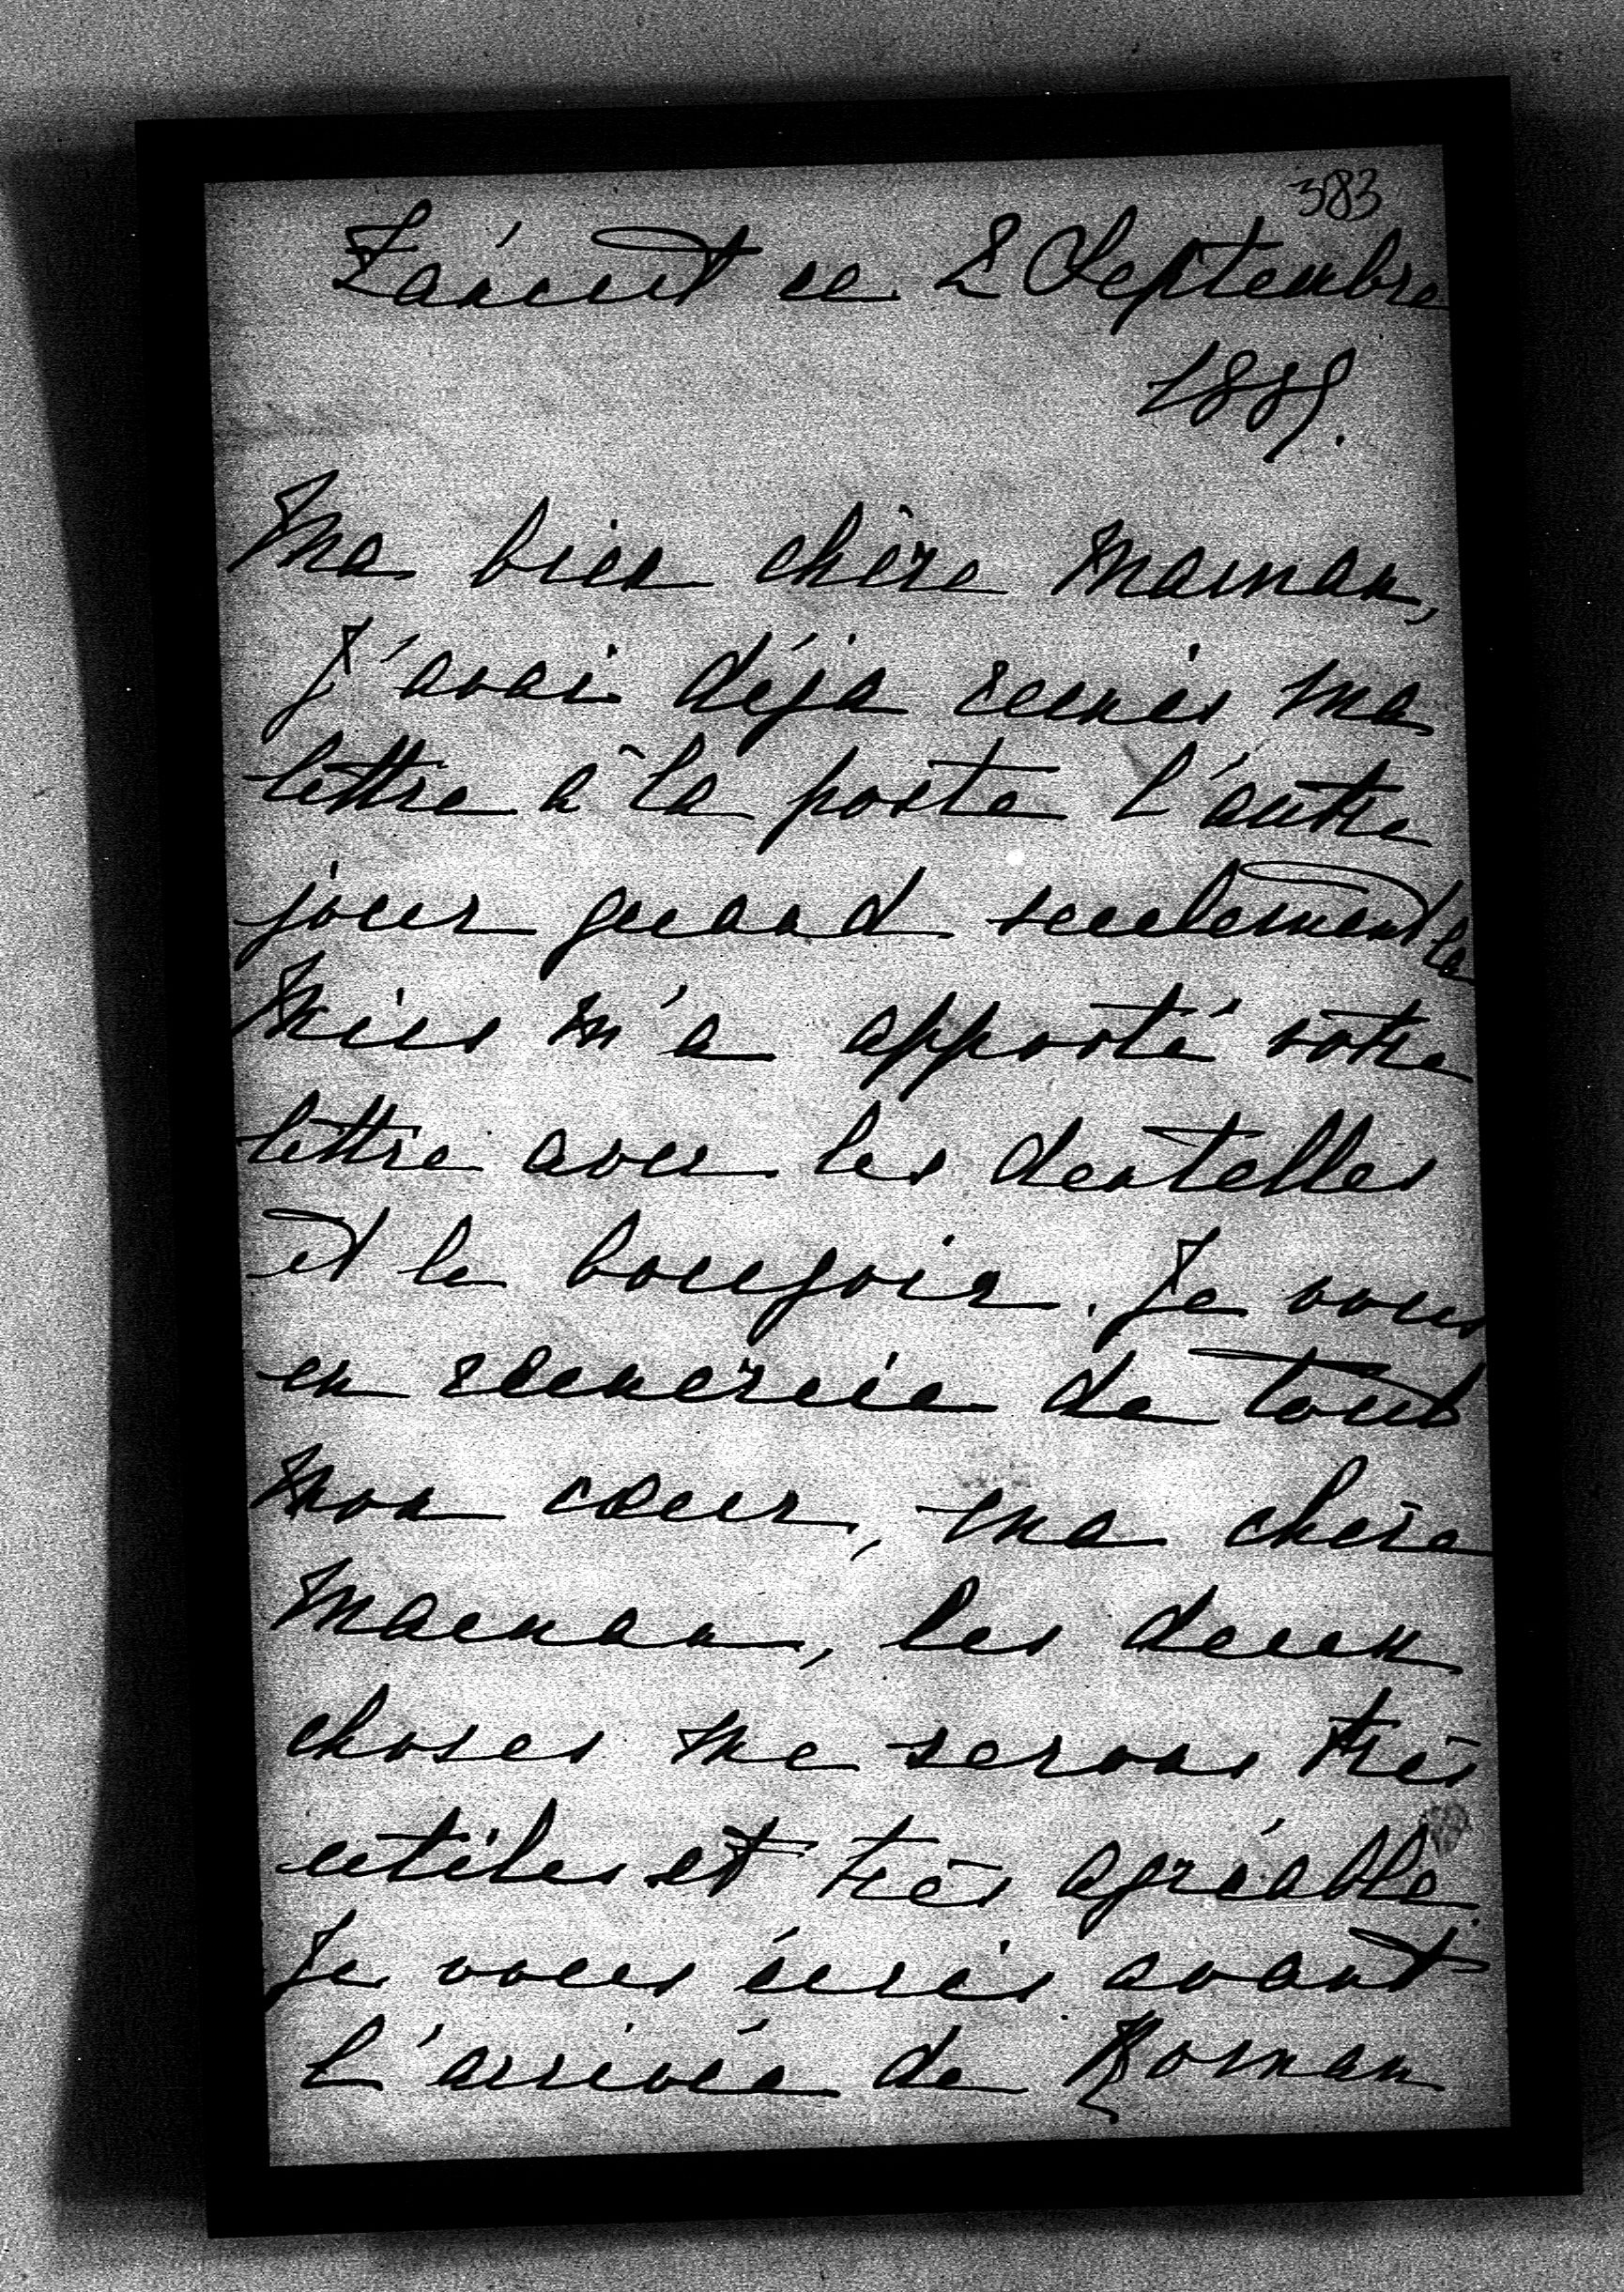 383
Łańcut ce 2 Septembre
1889.
Ma bien chère Maman,
J'avai déja remis ma
lettre à la poste l'autre
jour quand seulement la
Miss m'a apporté votre
lettre avec les dentelles
et le bougoir. Je vous
en remercie de tout
mon cœur, ma chère
Maman, les deux
choses me serons très
utiles et très agréable
Je vous écris avant
l'arrivée de Roman